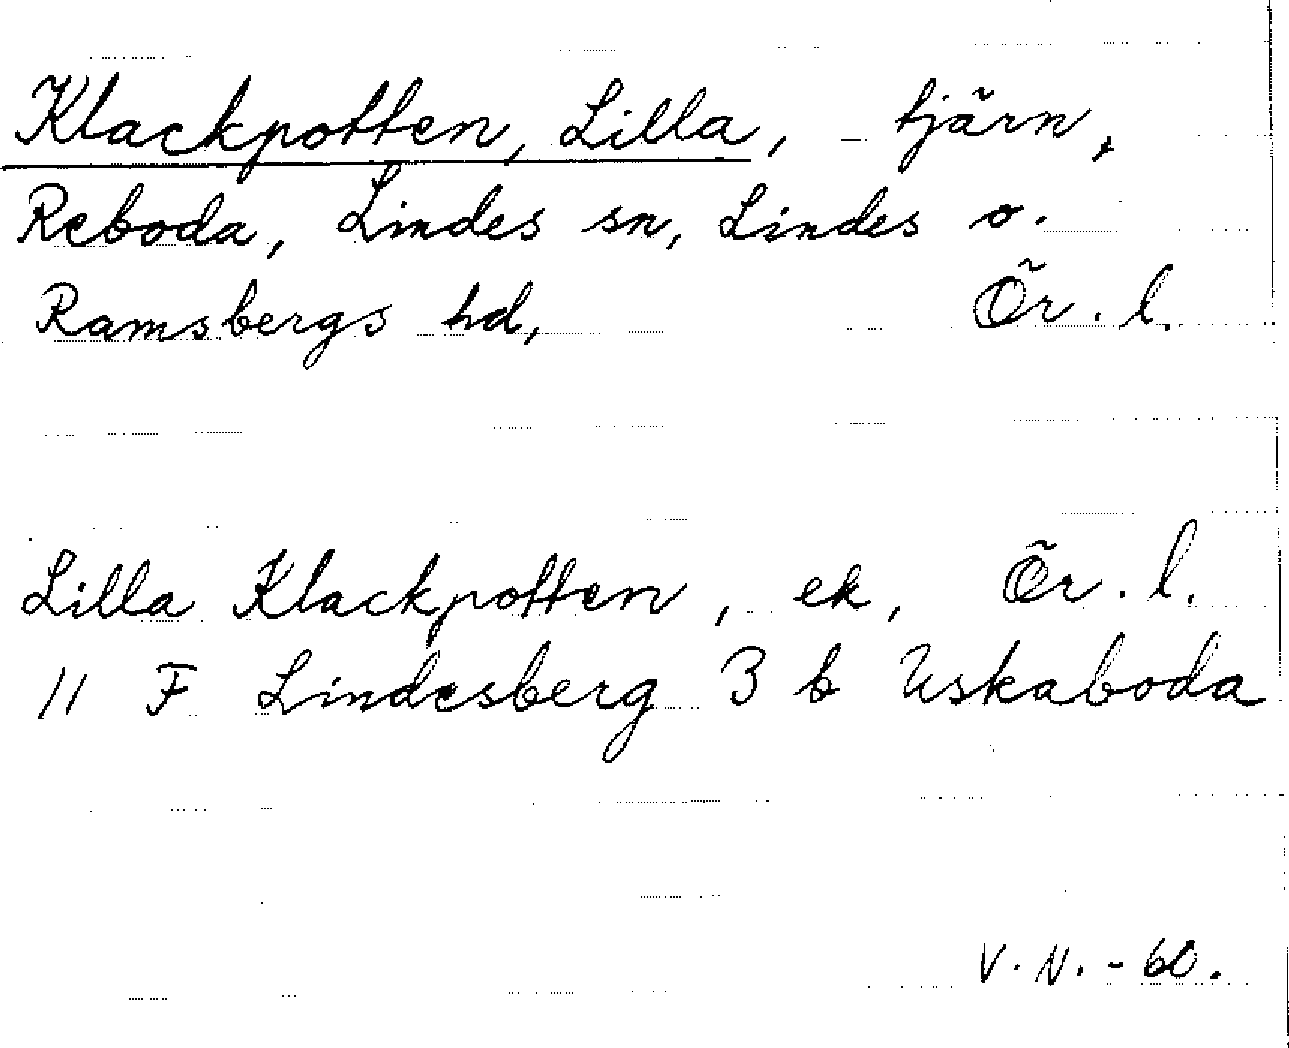 Klackpotten, Lilla, tjärn,
Reboda, Lindes sn, Lindes o.
Ramsbergs hd, Ör. l.
Lilla Klackpotten, ek, Ör. l.
11 F Lindesberg 3 b Uskaboda
V. N. - 60.